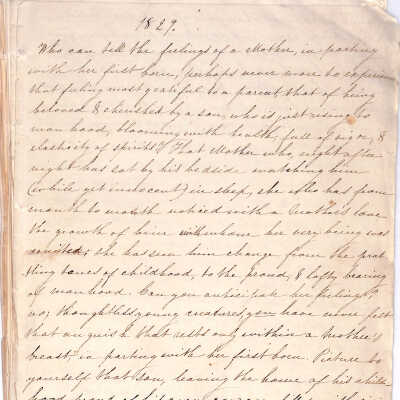 1829.
Who can tell the feelings of a Mother, in parting
with her first born, perhaps never more to experience
that feeling most grateful to a parent that of being
beloved & cherished by a son, who is just rising to
man hood, blooming with health, full of vigor, &
elasticity of spirits? That Mother who, night after
night has sat by his bedside watching him
(while yet innocent) in sleep, she who has from
month to month noticed with a Mothers love
the growth of him with whom her very being was
united; she has seen him change from the prat
tling tones of childhood, to the proud, & lofty bearing
of manhood. Can you anticipate her feelings?
no; thoughtless young creatures, you have never felt
that anguish that rests only within a Mother's
breast, in parting with her first born. Picture to
yourself that son, leaving the home of his child
hood, proud of his